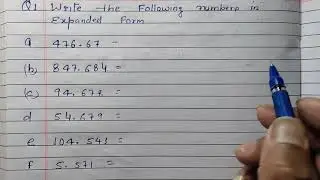 Q1 Write the Following numbers in
Expanded Form
a 476.67 =
(b) 847.684 =
(c) 94.672 =
d 54.679 =
e 104.543 =
f 5.571 =